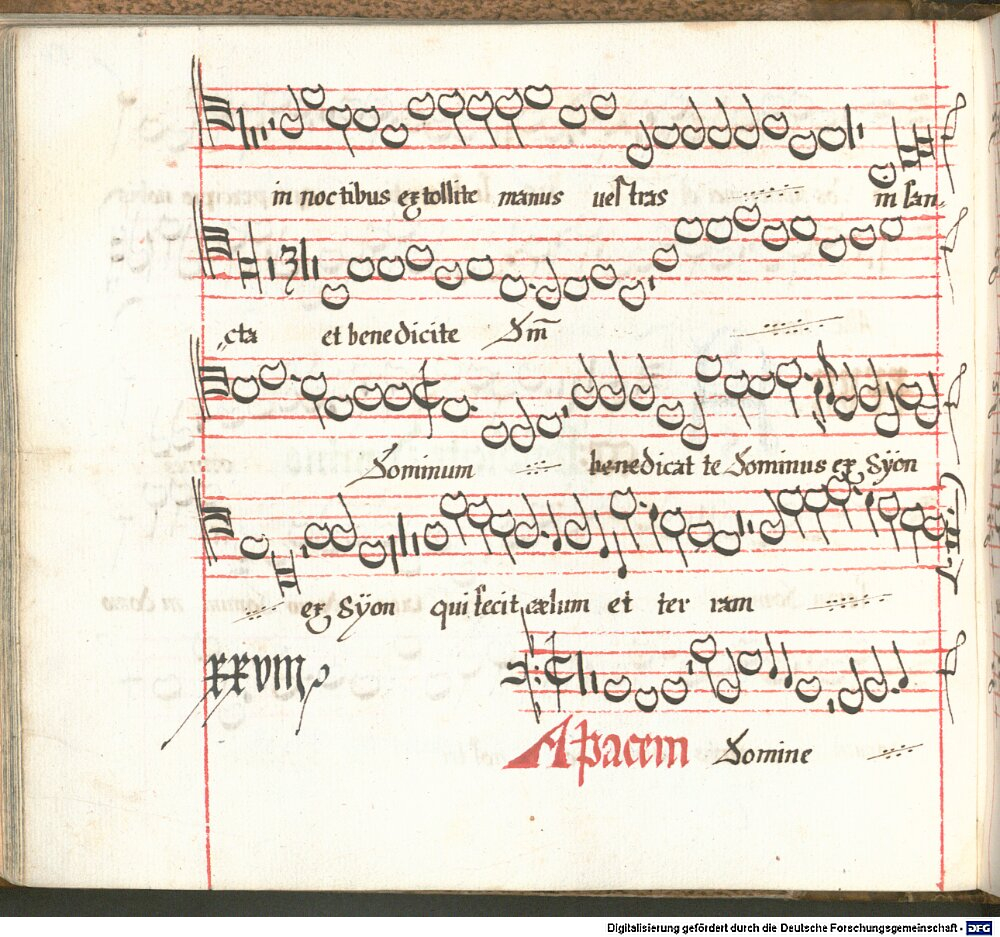 in noctibus extollite manus vestras in san-
cta et benedicite Dm̄
Dominum benedicat te Dominus ex Syon
ex Syon qui fecit cælum et terram
XXVIII
A pacem Domine
Digitalisierung gefördert durch die Deutsche Forschungsgemeinschaft - DFG